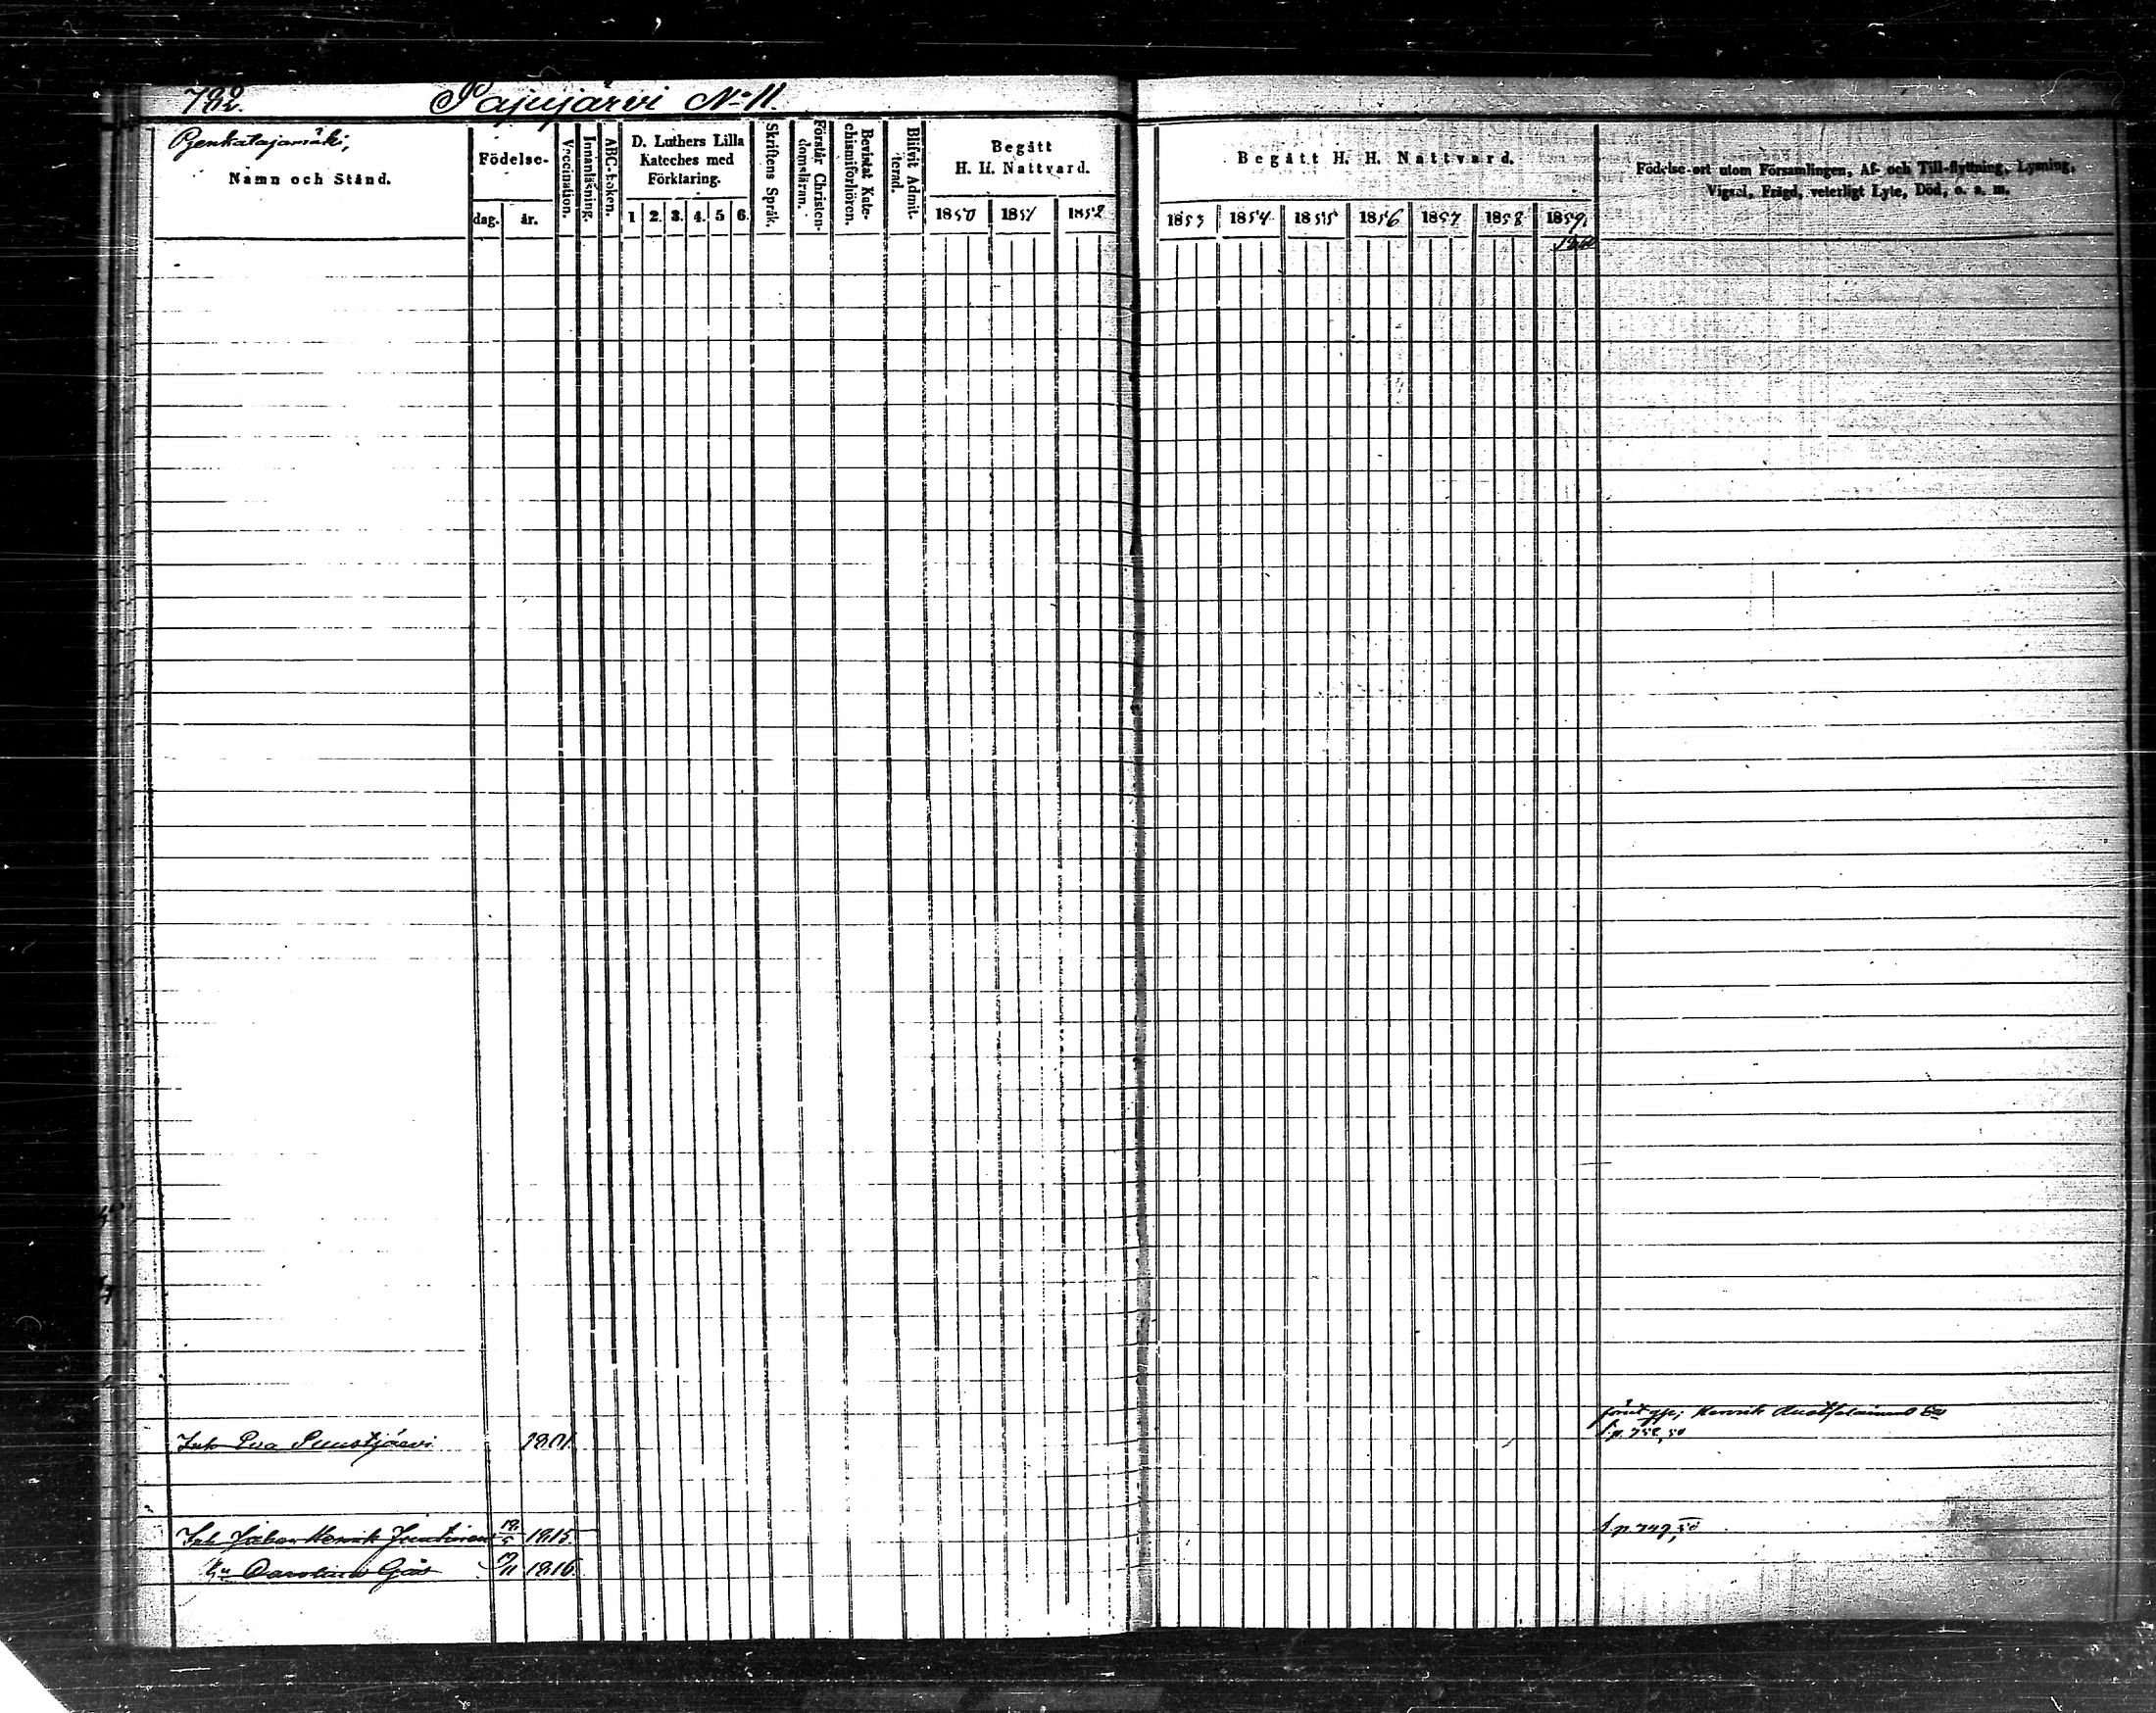 782.
Pajujärvi No 11.
Pienkatajamäki,
Namn och Stånd.
Födelse-
dag. år.
Vaccination.
Innanläsning.
ABC-boken.
D. Luthers Lilla
Kateches med
Förklaring.
1 2. 3. 4. 5 6.
Skriftens Språk.
Förstår Christen-
domsläran.
Bevistat Kate-
chismiförhören.
Blifvit Admit-
terad.
Begått
H. H. Nattvard.
1850 1851 1852
Begått H. H. Nattvard.
1853 1854 1855 1856 1857 1858 1859,
1860
Födelse-ort utom Församlingen, Af- och Till-flyttning, Lysning,
Vigsel, Frägd, veterligt Lyte, Död, o. s. m.
Inh Eva Puustjärvi 1801
Henrik
f. p. 752, 50
Inh Johan Henrik Juntunen 1815.
f. p. 747, 50
Hu Carolina Gås 11 1816.